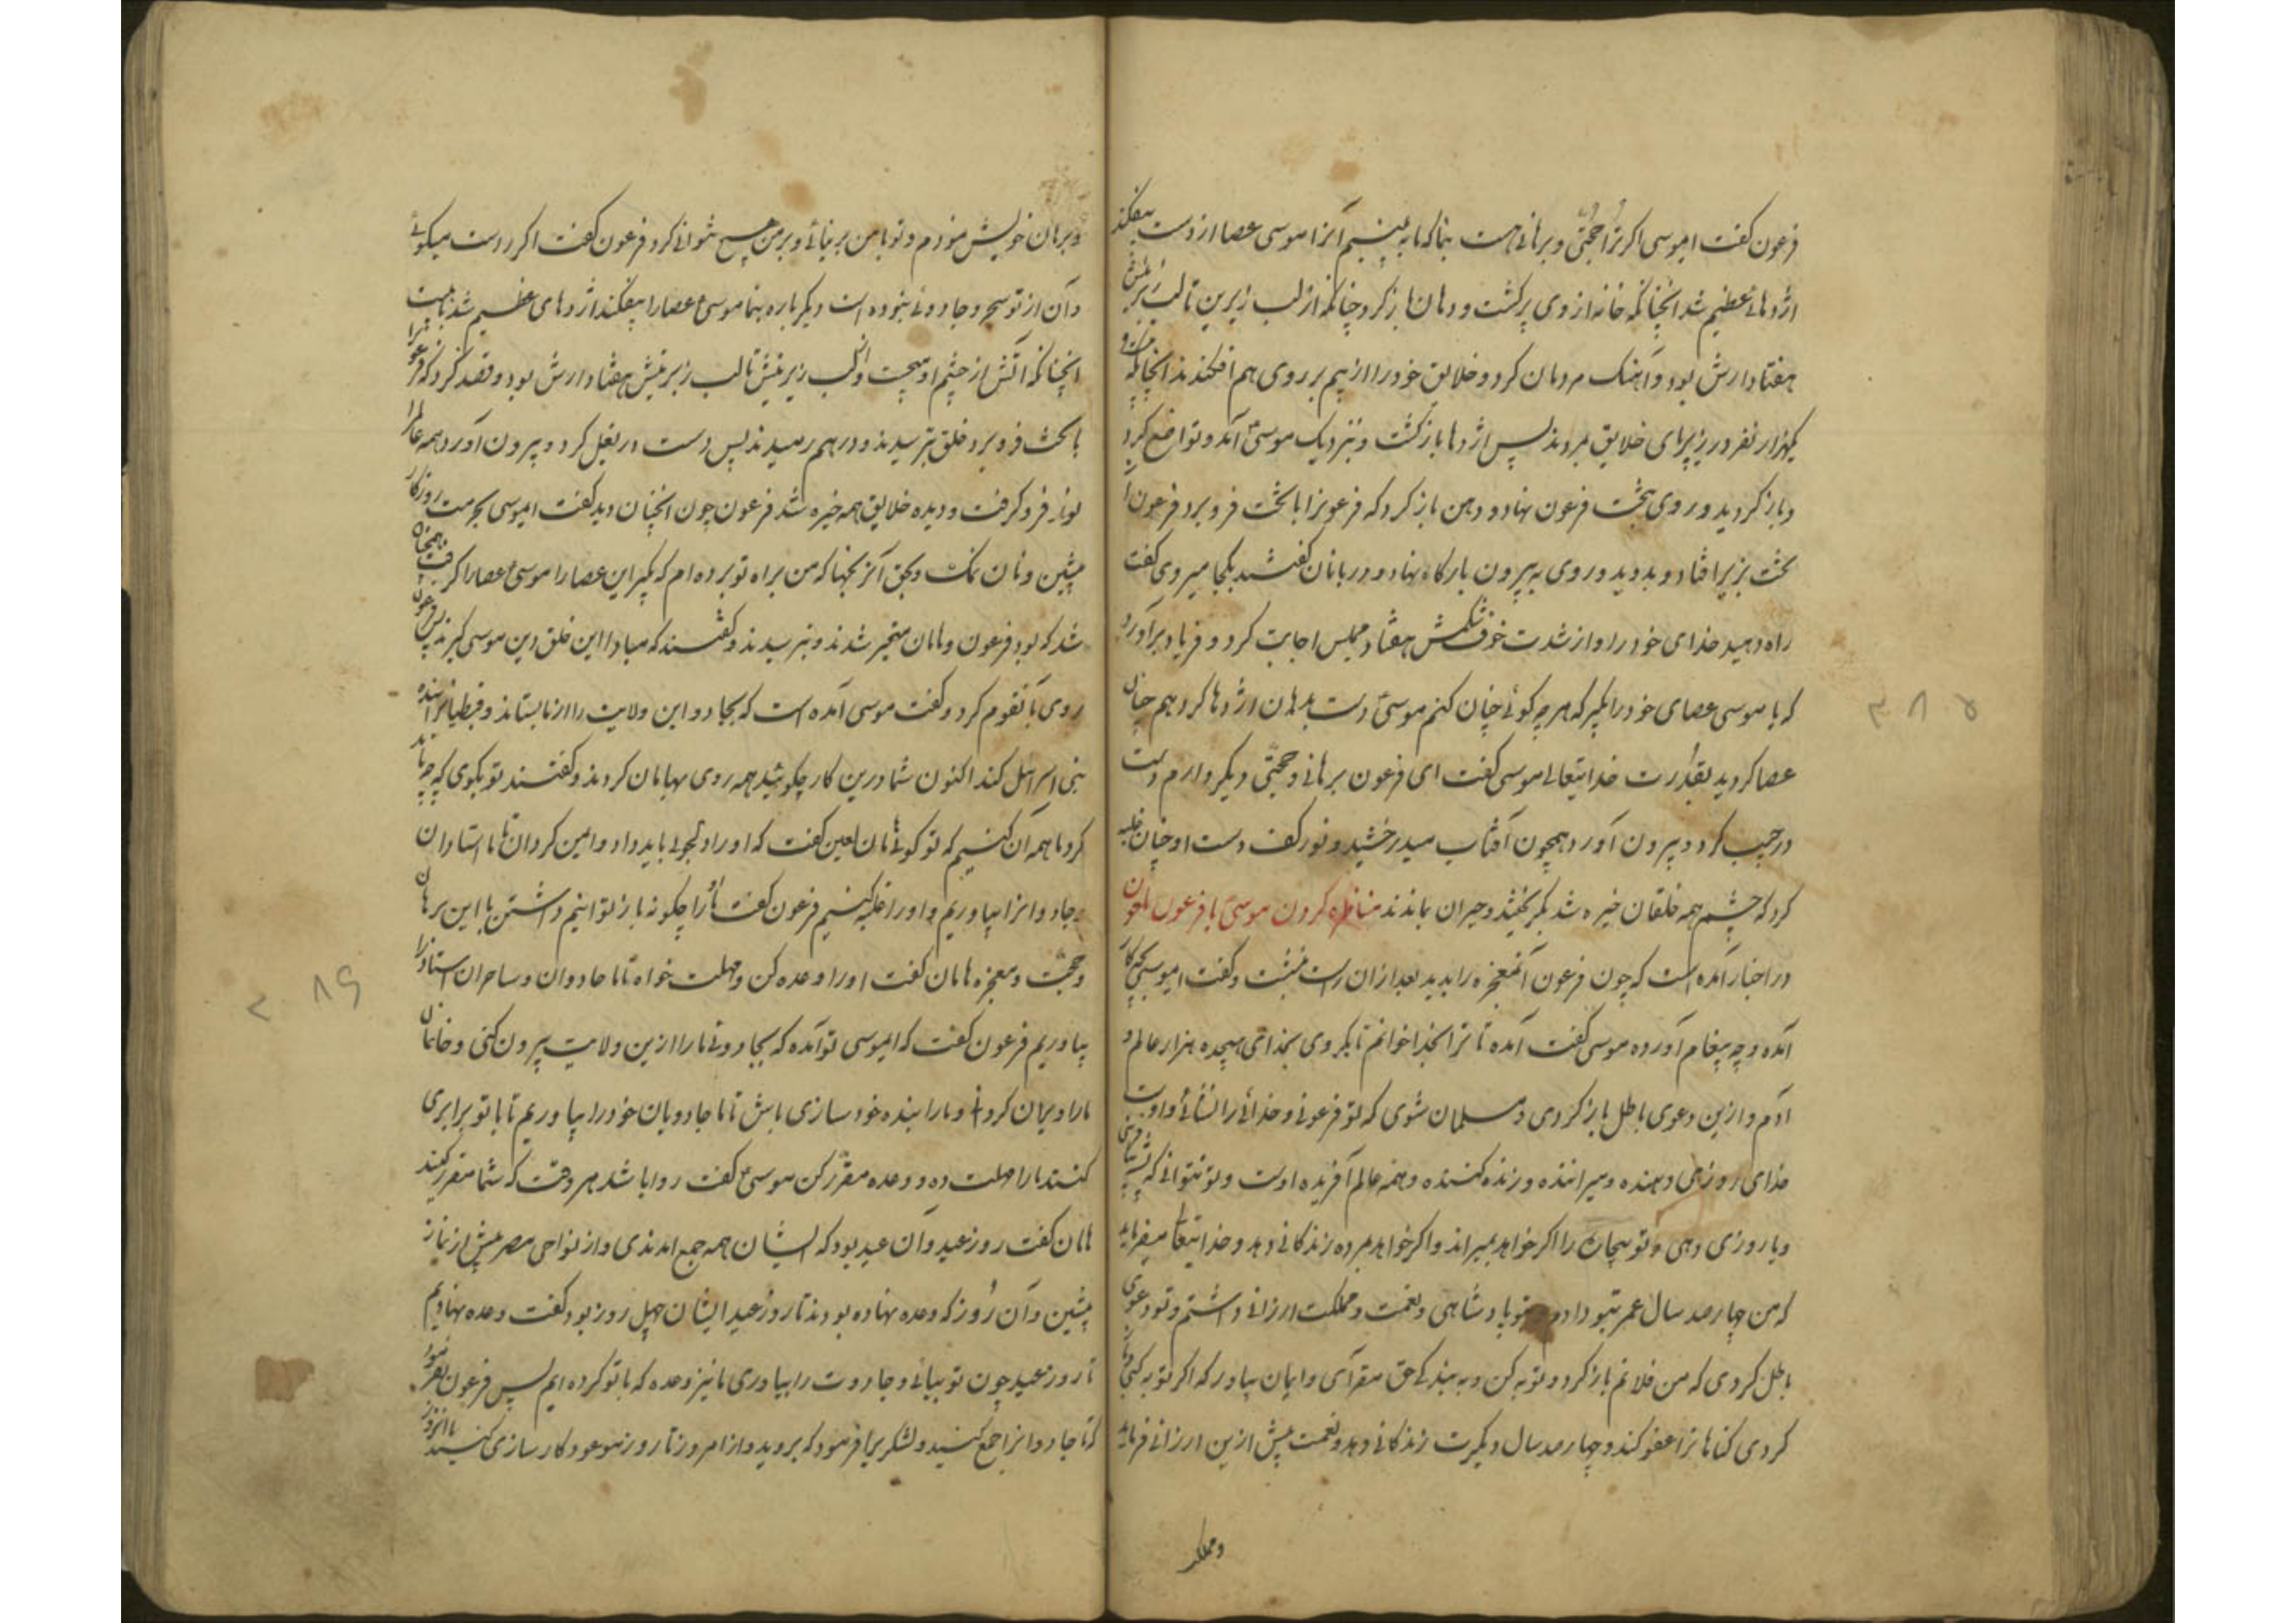 فرعون کفت ایموسی اکر ترا حجتی و برهانی هست بنما که ما به بینیم آنرا موسی عصا از دست بیفکند
اژدهائ عظیم شد انچنانکه خانه از وی پر کشت و دهان باز کرد چنانکه از لب زیرین تا لب زبرینش
هفتاد ارش بود و آهنک مردمان کرد و خلایق خود را از بیم بر روی هم افکندند انچنانکه
یکهزار نفر در زیر پای خلایق مردند پس اژدها باز کشت و بنزدیک موسی آمد و تواضع کرد
و باز کردید و روی بتخت فرعون نهاد و دهن باز کرد که فرعونرا با تخت فرو برد فرعون از
تخت بزیر افتاد و بدوید و روی به بیرون بارکاه نهاد و دربانان کفتند بکجا میروی کفت
راه دهید خدای خود را و از شدت خوف شکمش هفتاد مجلس اجابت کرد و فریاد برآورد
که یا موسی عصای خود را بکیر که هر چه کوئی چنان کنم موسی دست بدهان اژدها کرد هم چنان
عصا کردید بقدرت خدایتعالی موسی کفت ای فرعون برهانی و حجتی دیکر دارم دست
در جیب کرد و بیرون آورد همچون آفتاب میدرخشید و نور کف دست او چنان غلبه
کرد که چشم همه خلقان خیره شد و حیران بماندند مناظره کردن موسی با فرعون ملعون
در اخبار آمده است که چون فرعون آنمعجزه را بدید بعد از ان راست بنشست و کفت ایموسی بچه کار
آمده و چه پیغام آورده موسی کفت آمده تا ترا بخدا خوانم تا بکروی بخدای هیجده هزار عالم و
آدم و ازین دعوی باطل باز کردی و مسلمان شوی که تو فرعونی و خدائی را نشائی و اوست
خدای روزی دهنده و میراننده و زنده کننده و همه عالم آفریده اوست و تو نتوانی که
و یا روزی دهی و تو بیچاره را اکر خواهد بمیراند و اکر خواهد مرده زندکانی دهد و خدایتعالی میفرماید
که من چهارصد سال عمر بتو دادم و بتو پادشاهی و نعمت و مملکت ارزانی داشتم و تو دعوی
باطل کردی که من خدایم باز کرد و توبه کن و به بندکی حق مقر آی و ایمان بیاور که اکر توبه کنی
کردی کناهانرا عفو کند و چهارصد سال دیکرت زندکانی دهد و نعمت بیش ازین ارزانی فرماید
و مملکت
۳۸۵
و برهان خویش نمودم و تو با من بر نیائی و بر من هیچ نتوانی کرد فرعون کفت اکر راست میکوئی
و آن از تو سحر و جادوئی نبوده است دیکر باره بنما موسی عصا را بیفکند اژدهای عظیم شد
انچنانکه آتش از چشم او میجست و از لب زیرینش تا لب زبرینش هفتاد ارش بود و قصد کرد که فرعونرا
با تخت فرو برد خلق بترسیدند و در هم رمیدند پس دست در بغل کرد و بیرون آورد همه عالم را
نور فرو کرفت و دیده خلایق همه خیره شد فرعون چون انچنان دید کفت ایموسی بحرمت روزکار
پیشین و نان و نمک و بحق آنرنجها که من براه تو برده ام که بکیر این عصا را موسی عصا را کرفت همچنان
شد که بود فرعون و هامان متحیر شدند و بترسیدند و کفتند که مبادا این خلق دین موسی کیرند پس فرعون
روی بآنقوم کرد و کفت موسی آمده است که بجادو این ولایت را از ما بستاند و قبطیانرا بنده
بنی اسرائیل کند اکنون شما درین کار چکوئید همه روی بهامان کردند و کفتند تو بکوی که چه باید
کرد ما همه آن کنیم که تو کوئی هامان لعین کفت که او را دلجوئی باید داد و امین کردان تا ما استادان
و جادوانرا بیاوریم و او را غلبه کنیم فرعون کفت او را چکونه باز توانیم داشتن با این برهان
و حجت و معجزه هامان کفت او را وعده کن و مهلت خواه تا ما جادوان و ساحران استاد را
بیاوریم فرعون کفت که ایموسی تو آمده که بجادوئی ما را ازین ولایت بیرون کنی و خانمان
ما را ویران کردانی و ما را بنده خود سازی باش تا ما جادویان خود را بیاوریم تا با تو برابری
کنند ما را مهلت ده و وعده مقرر کن موسی کفت روا باشد هر وقت که شما مقرر کنید
هامان کفت روز عید و آن عید بود که ایشان همه جمع امدندی و از نواحی مصر پیش از نماز
پیشین و آن روز که وعده نهاده بودند تا روز عید ایشان چهل روز بود کفت وعده نهادیم
تا روز عید چون تو بیائی و جادوت را بیاوری ما نیز وعده که با تو کرده ایم پس فرعون بفرمود
که تا جادوانرا جمع کنید و لشکریرا فرمود که بروید و از امروز تا روز موعود کارسازی کنید
۲۸۶